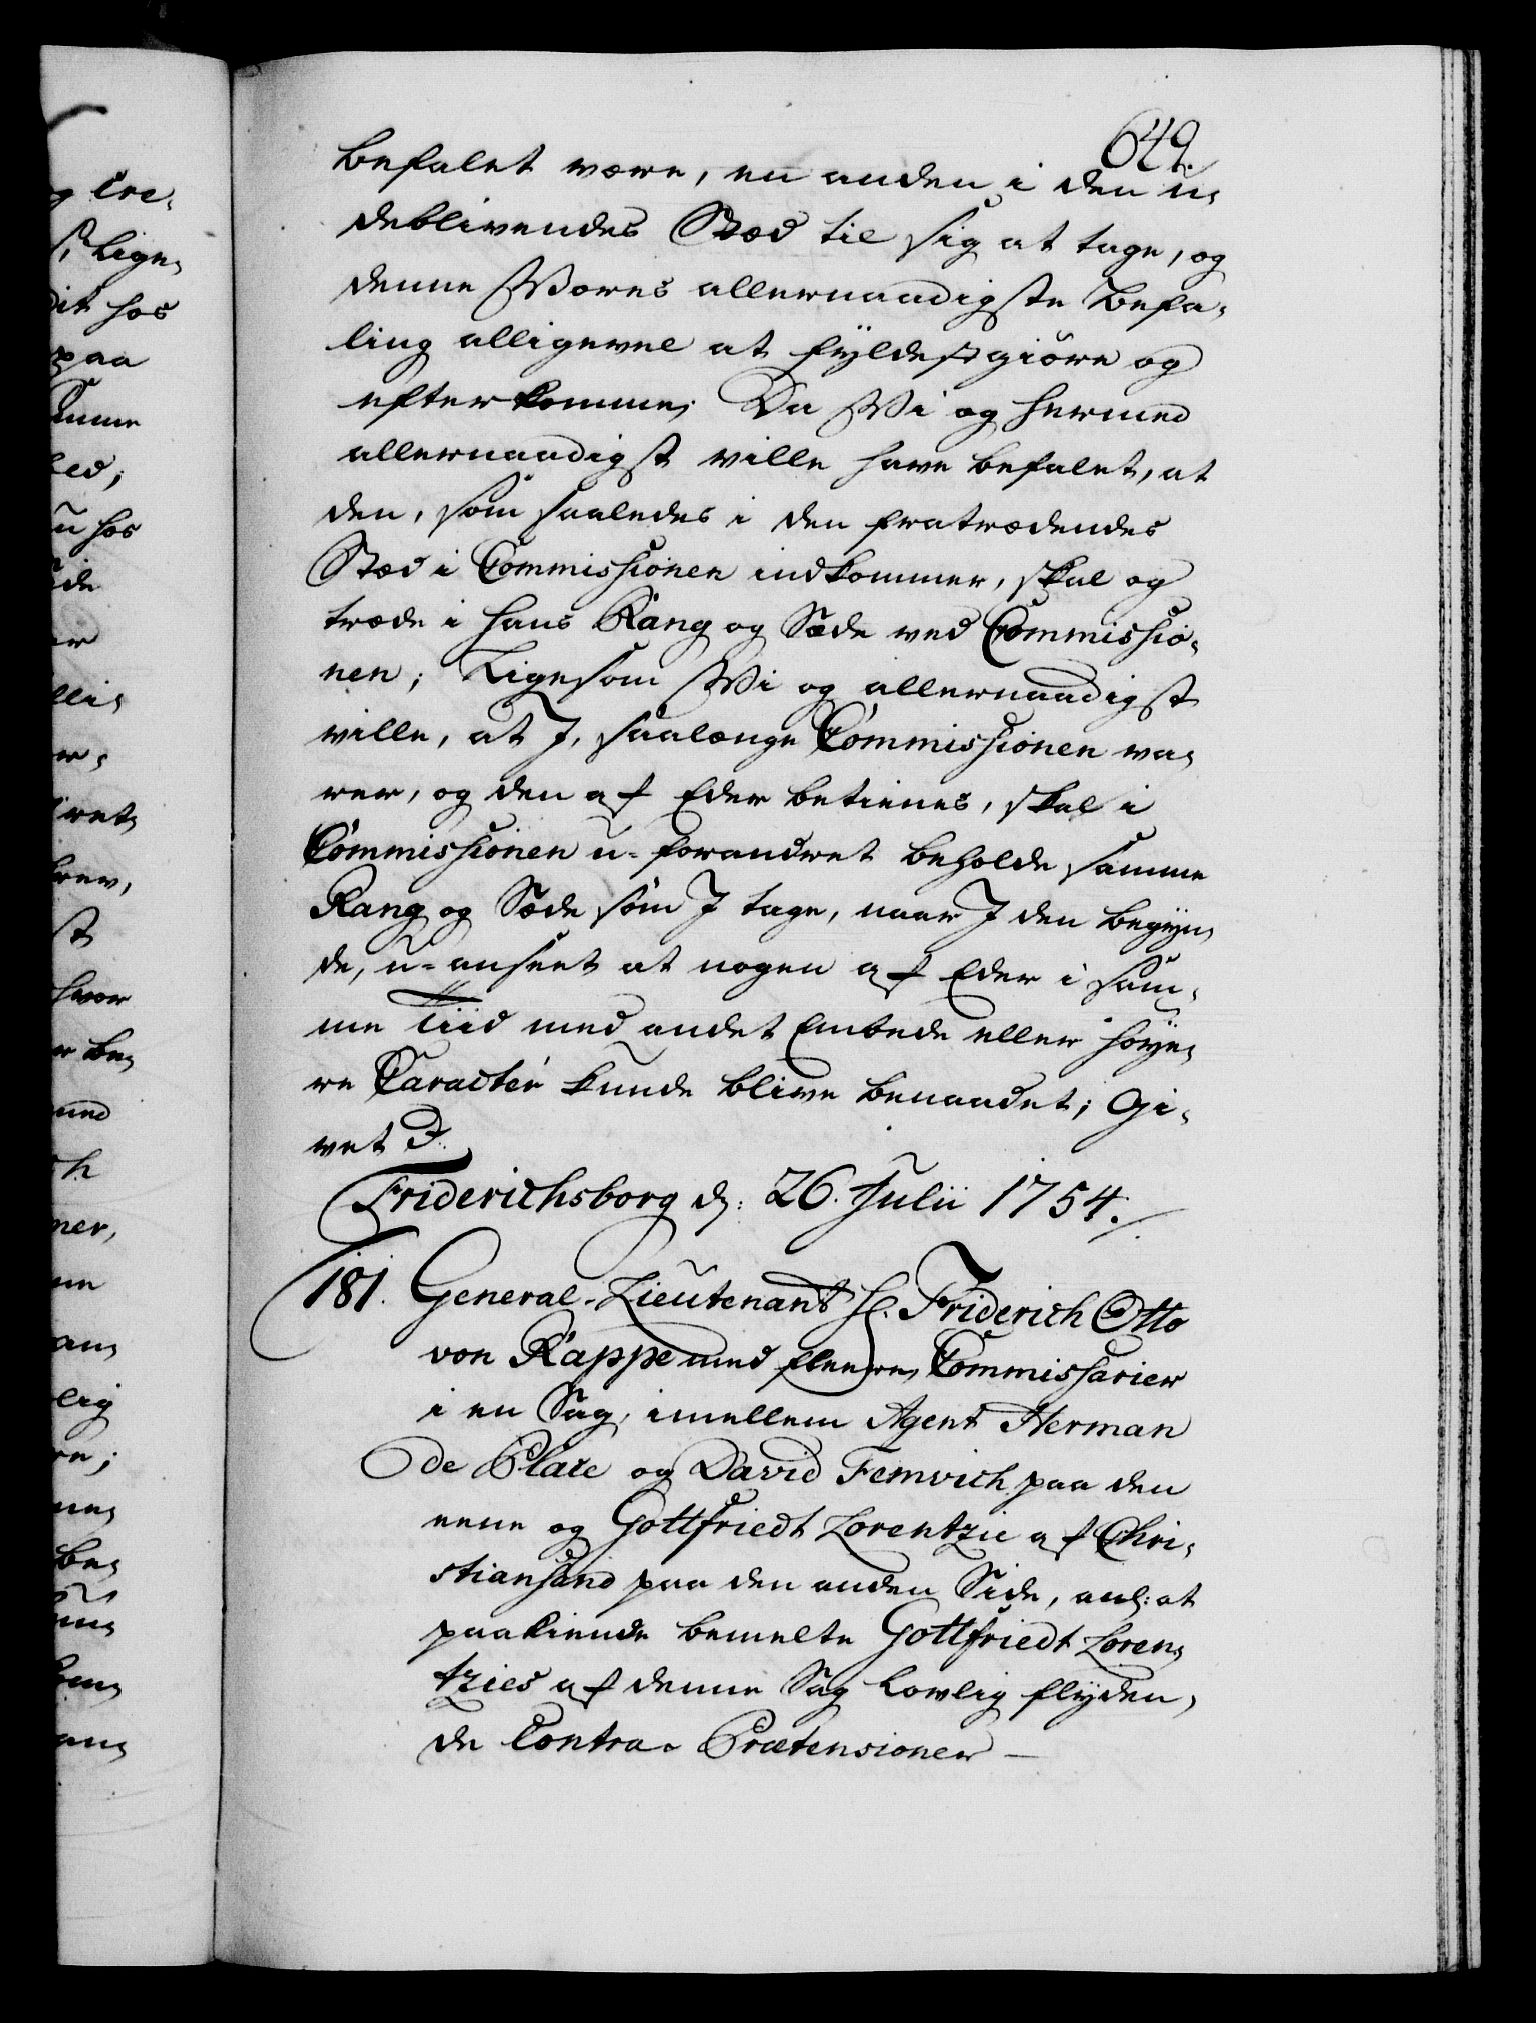 649.
befalet være, en anden i den u-
deblivendes Stæd til sig at tage, og
denne Vores allernaadigste Befa-
ling alligevel at fyldestgiöre og
efterkomme; Da Vi og hermed
allernaadigst ville have befalet, at
den, som saaledes i den fratrædendes
Stæd i Commissionen indkommer, skal og
træde i hans Rang og Sæde ved Commissio-
nen; Ligesom Vi og allernaadigst
ville, at I, saalænge Commissionen va-
rer, og den af Eder betienes, skal i
Commissionen u-forandret beholde samme
Rang og Sæde som I tage, naar I den begyn-
de, u-anseet at nogen af Eder i sam-
me Tiid med andet Embede eller höye-
re Caractér kunde blive benaadet; Gi-
vet J.
Friderichsborg d: 26. Julii 1754.
181. General-Lieutenant H. Friderich Otto
von Rappe med fleere Commissarier
i en Sag, imellem Agent Herman
de Plate og David Femvich paa den
eene og Gottfriedt Lorentzie af Chri-
stiansand paa den anden Side, anl: at
paakiende bemelte Gottfriedt Loren-
tzies af denne Sag lovlig flyden-
de Contra-Prætensioner
og Cre-
Lige-
dit hos
paa
u hos
hvor
ner,